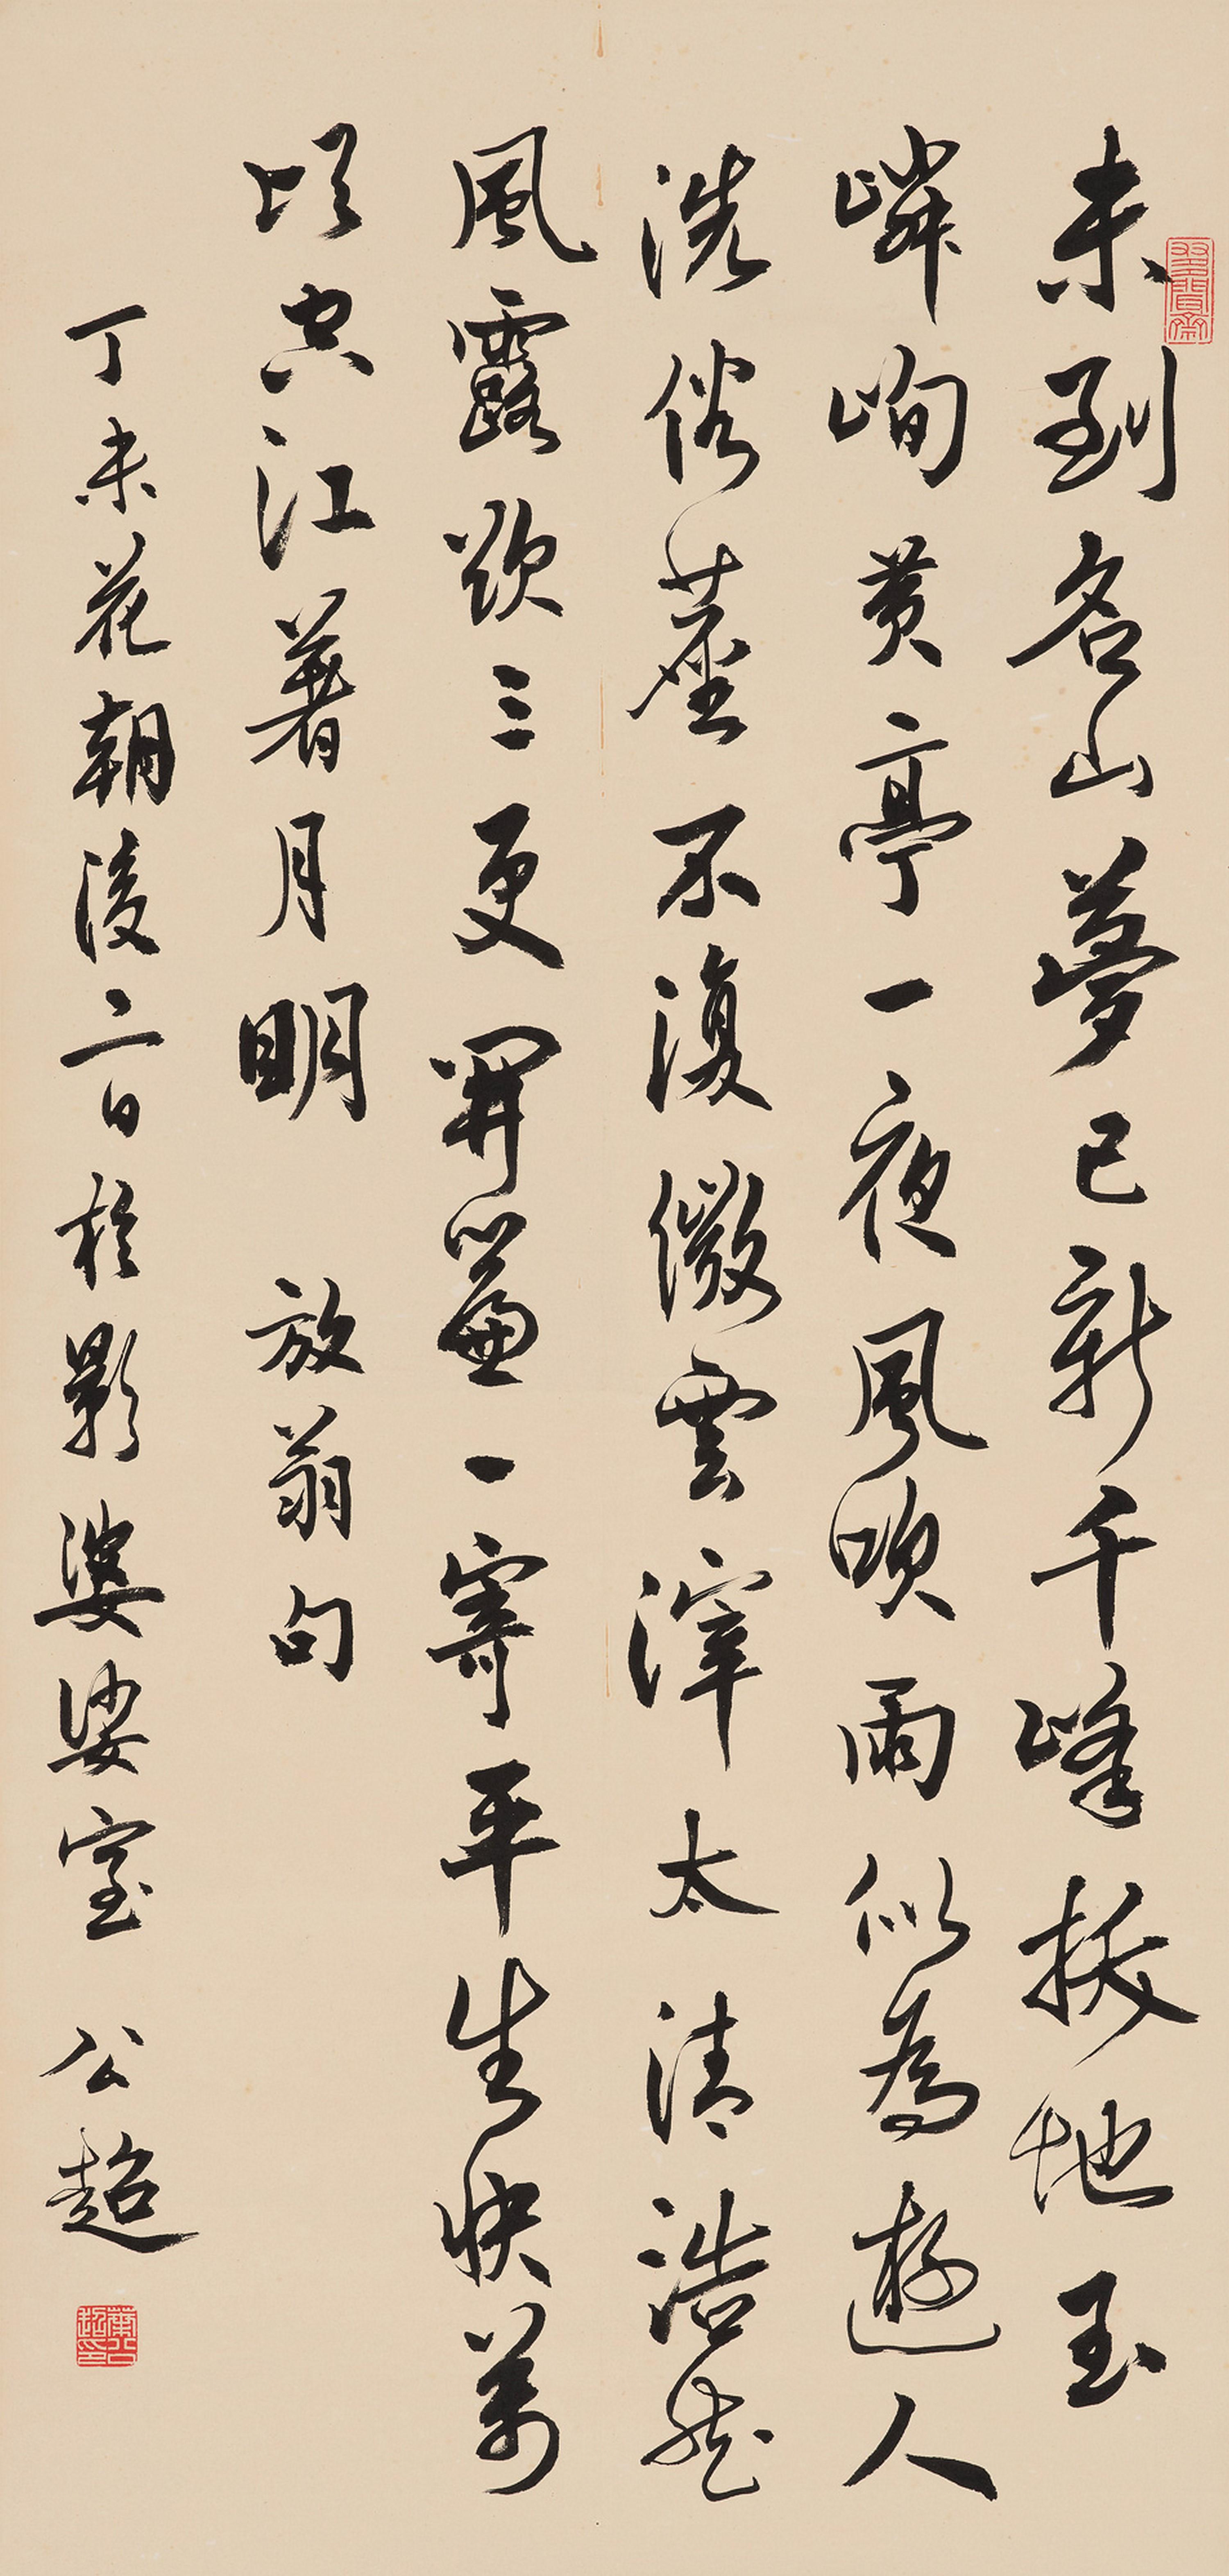 未到名山夢已新千峰拔地玉
嶙峋黃亭一夜風吹雨似為遊人
洗俗塵不復微雲滓太清浩然
風露欲三更開簾一寄平生快萬
頃空江著月明 放翁句
丁未花朝後二日於影婆娑室 公超
葉公超印